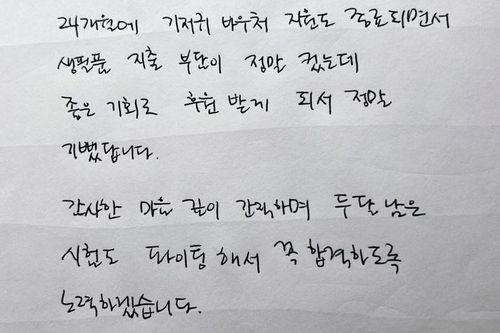 24개월에 기저귀 바우처 지원도 종료되면서
생필품 지출 부담이 정말 컸는데
좋은 기회로 후원 받게 되서 정말
기뻤답니다.
감사한 마음 깊이 간직하며 두달 남은
시험도 파이팅 해서 꼭 합격하도록
노력하겠습니다.